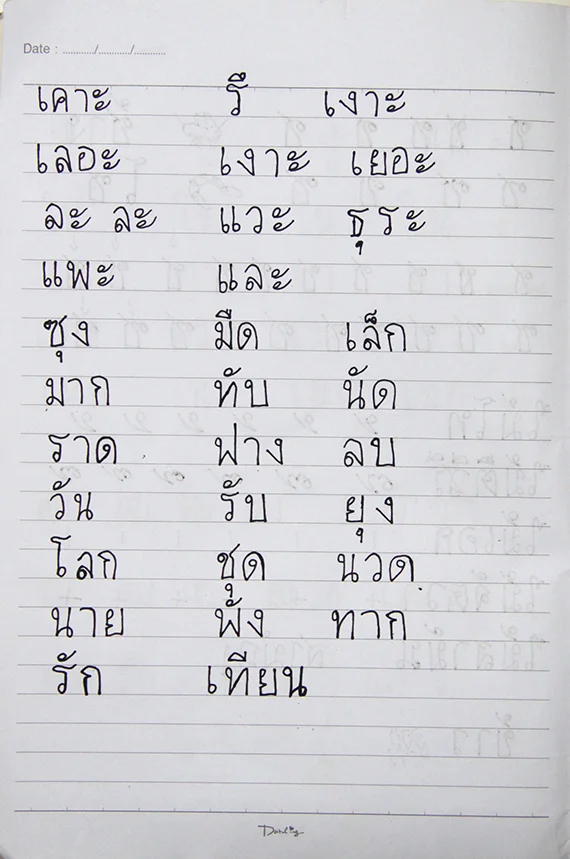 Date : ............/............/............
เคาะ รึ เงาะ
เลอะ เงาะ เยอะ
ละ ละ แวะ ธุระ
แพะ และ
ซุง มืด เล็ก
มาก ทับ นัด
ราด ฟาง ลบ
วัน รับ ยุง
โลก ชุด นวด
นาย พัง ทาก
รัก เทียน